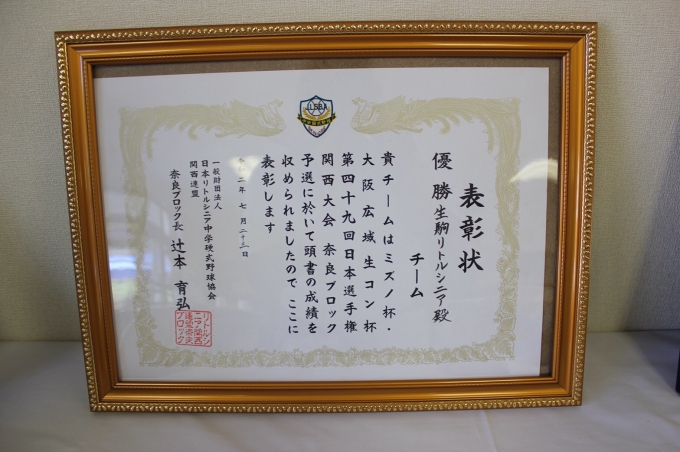 表彰状
チーム
優勝 生駒リトルシニア殿
貴チームはミズノ杯・
大阪広域生コン杯
第四十九回日本選手権
関西大会 奈良ブロック
予選に於いて頭書の成績を
収められましたので ここに
表彰します
二年 七月二十三日
一般財団法人
日本リトルシニア中学硬式野球協会
関西連盟
奈良ブロック長 辻本 育弘
リトルシ
ニア関西
連盟奈良
ブロック